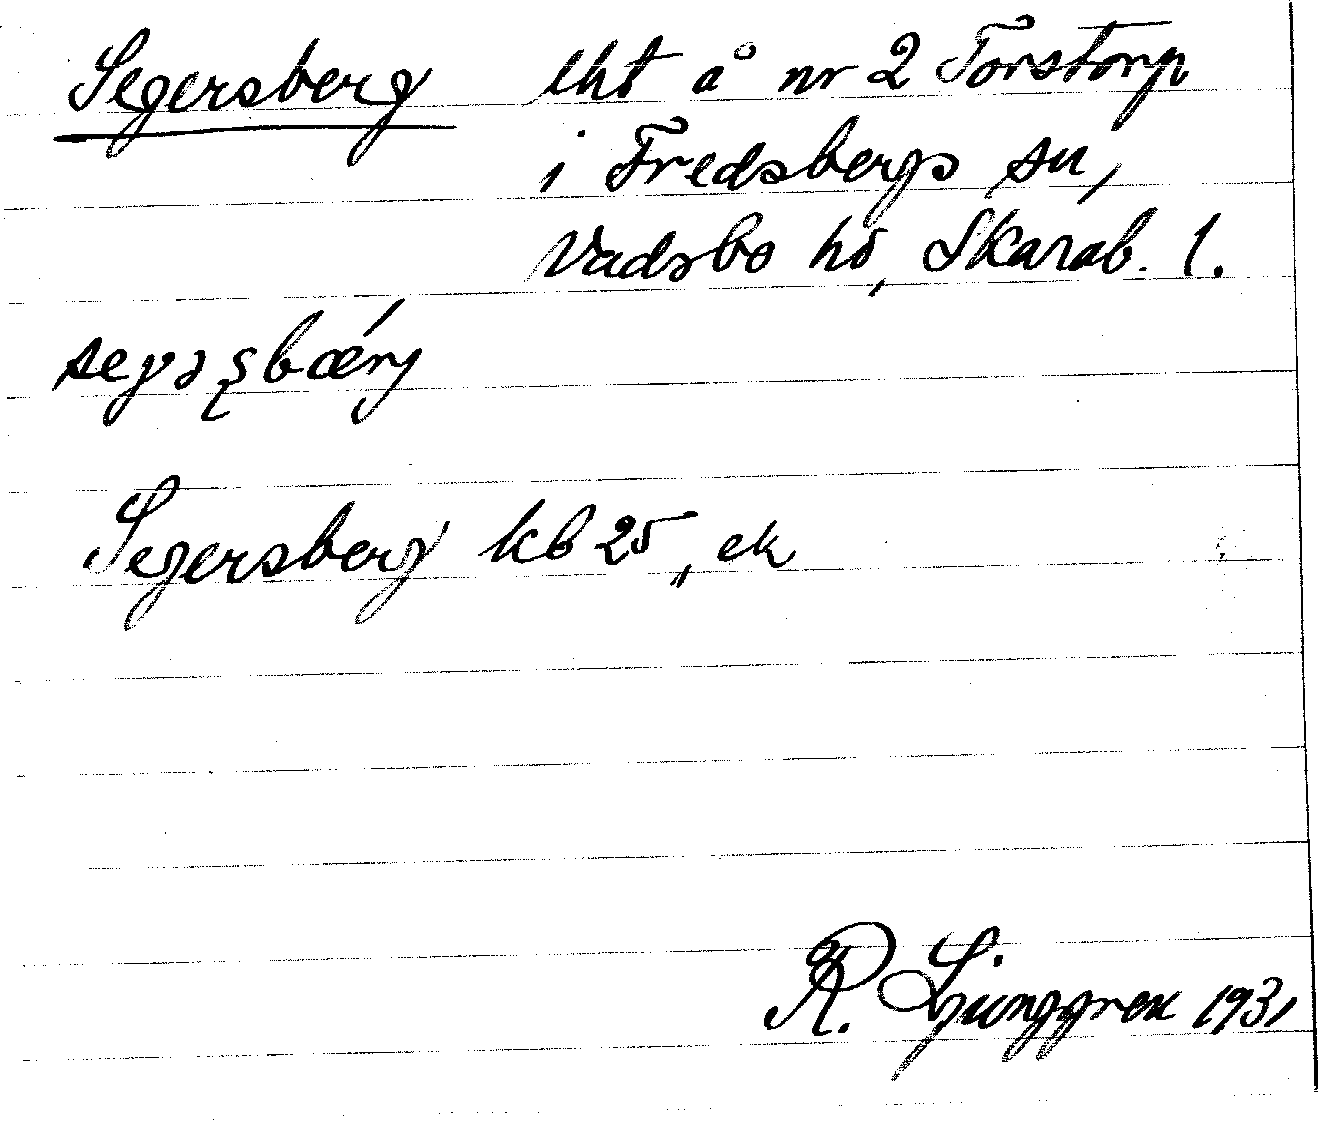 Segersberg lht å nr 2 Torstorp
i Fredsbergs sn,
Vadsbo hd, Skarab. l.
Segersberg kb 25, ek
R. Ljunggren 1931